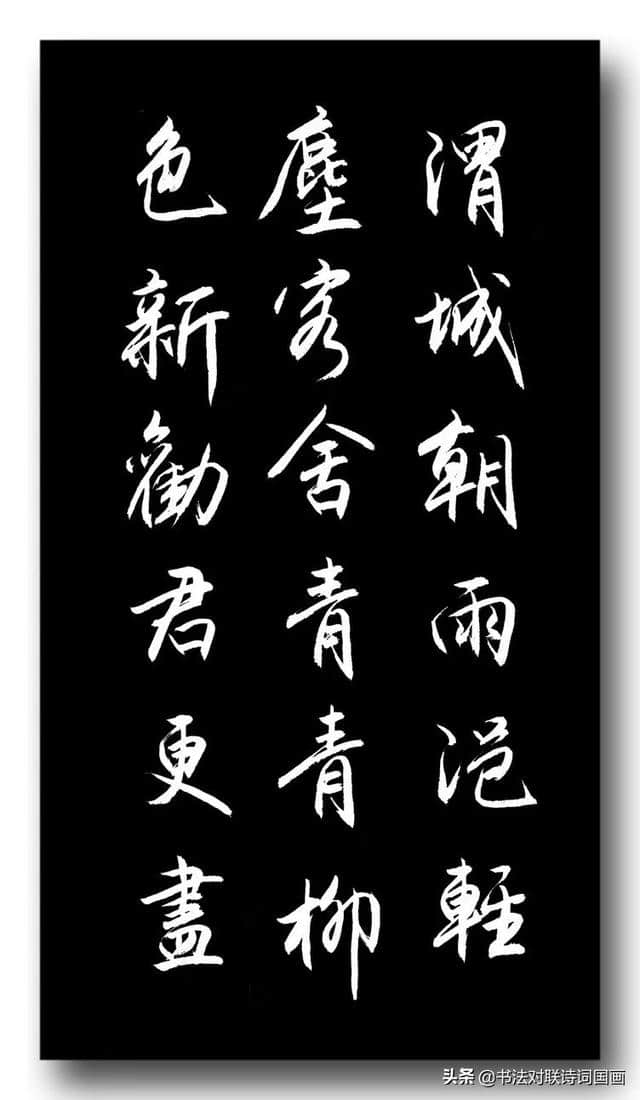 渭城朝雨浥輕
塵客舍青青柳
色新勸君更盡
头条 @书法对联诗词国画